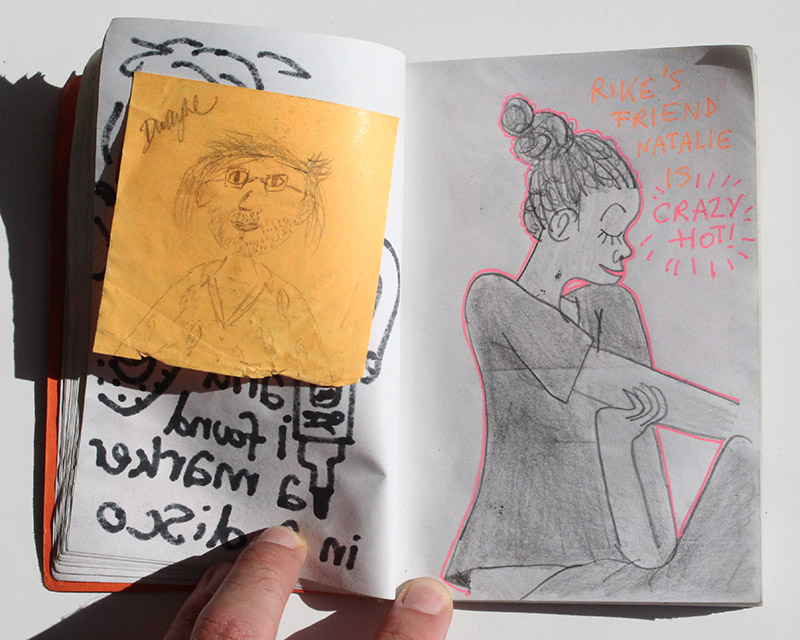 Dwayne
and
i found
a marker
in a disco
RIKE'S
FRIEND
NATALIE
IS
CRAZY
HOT!